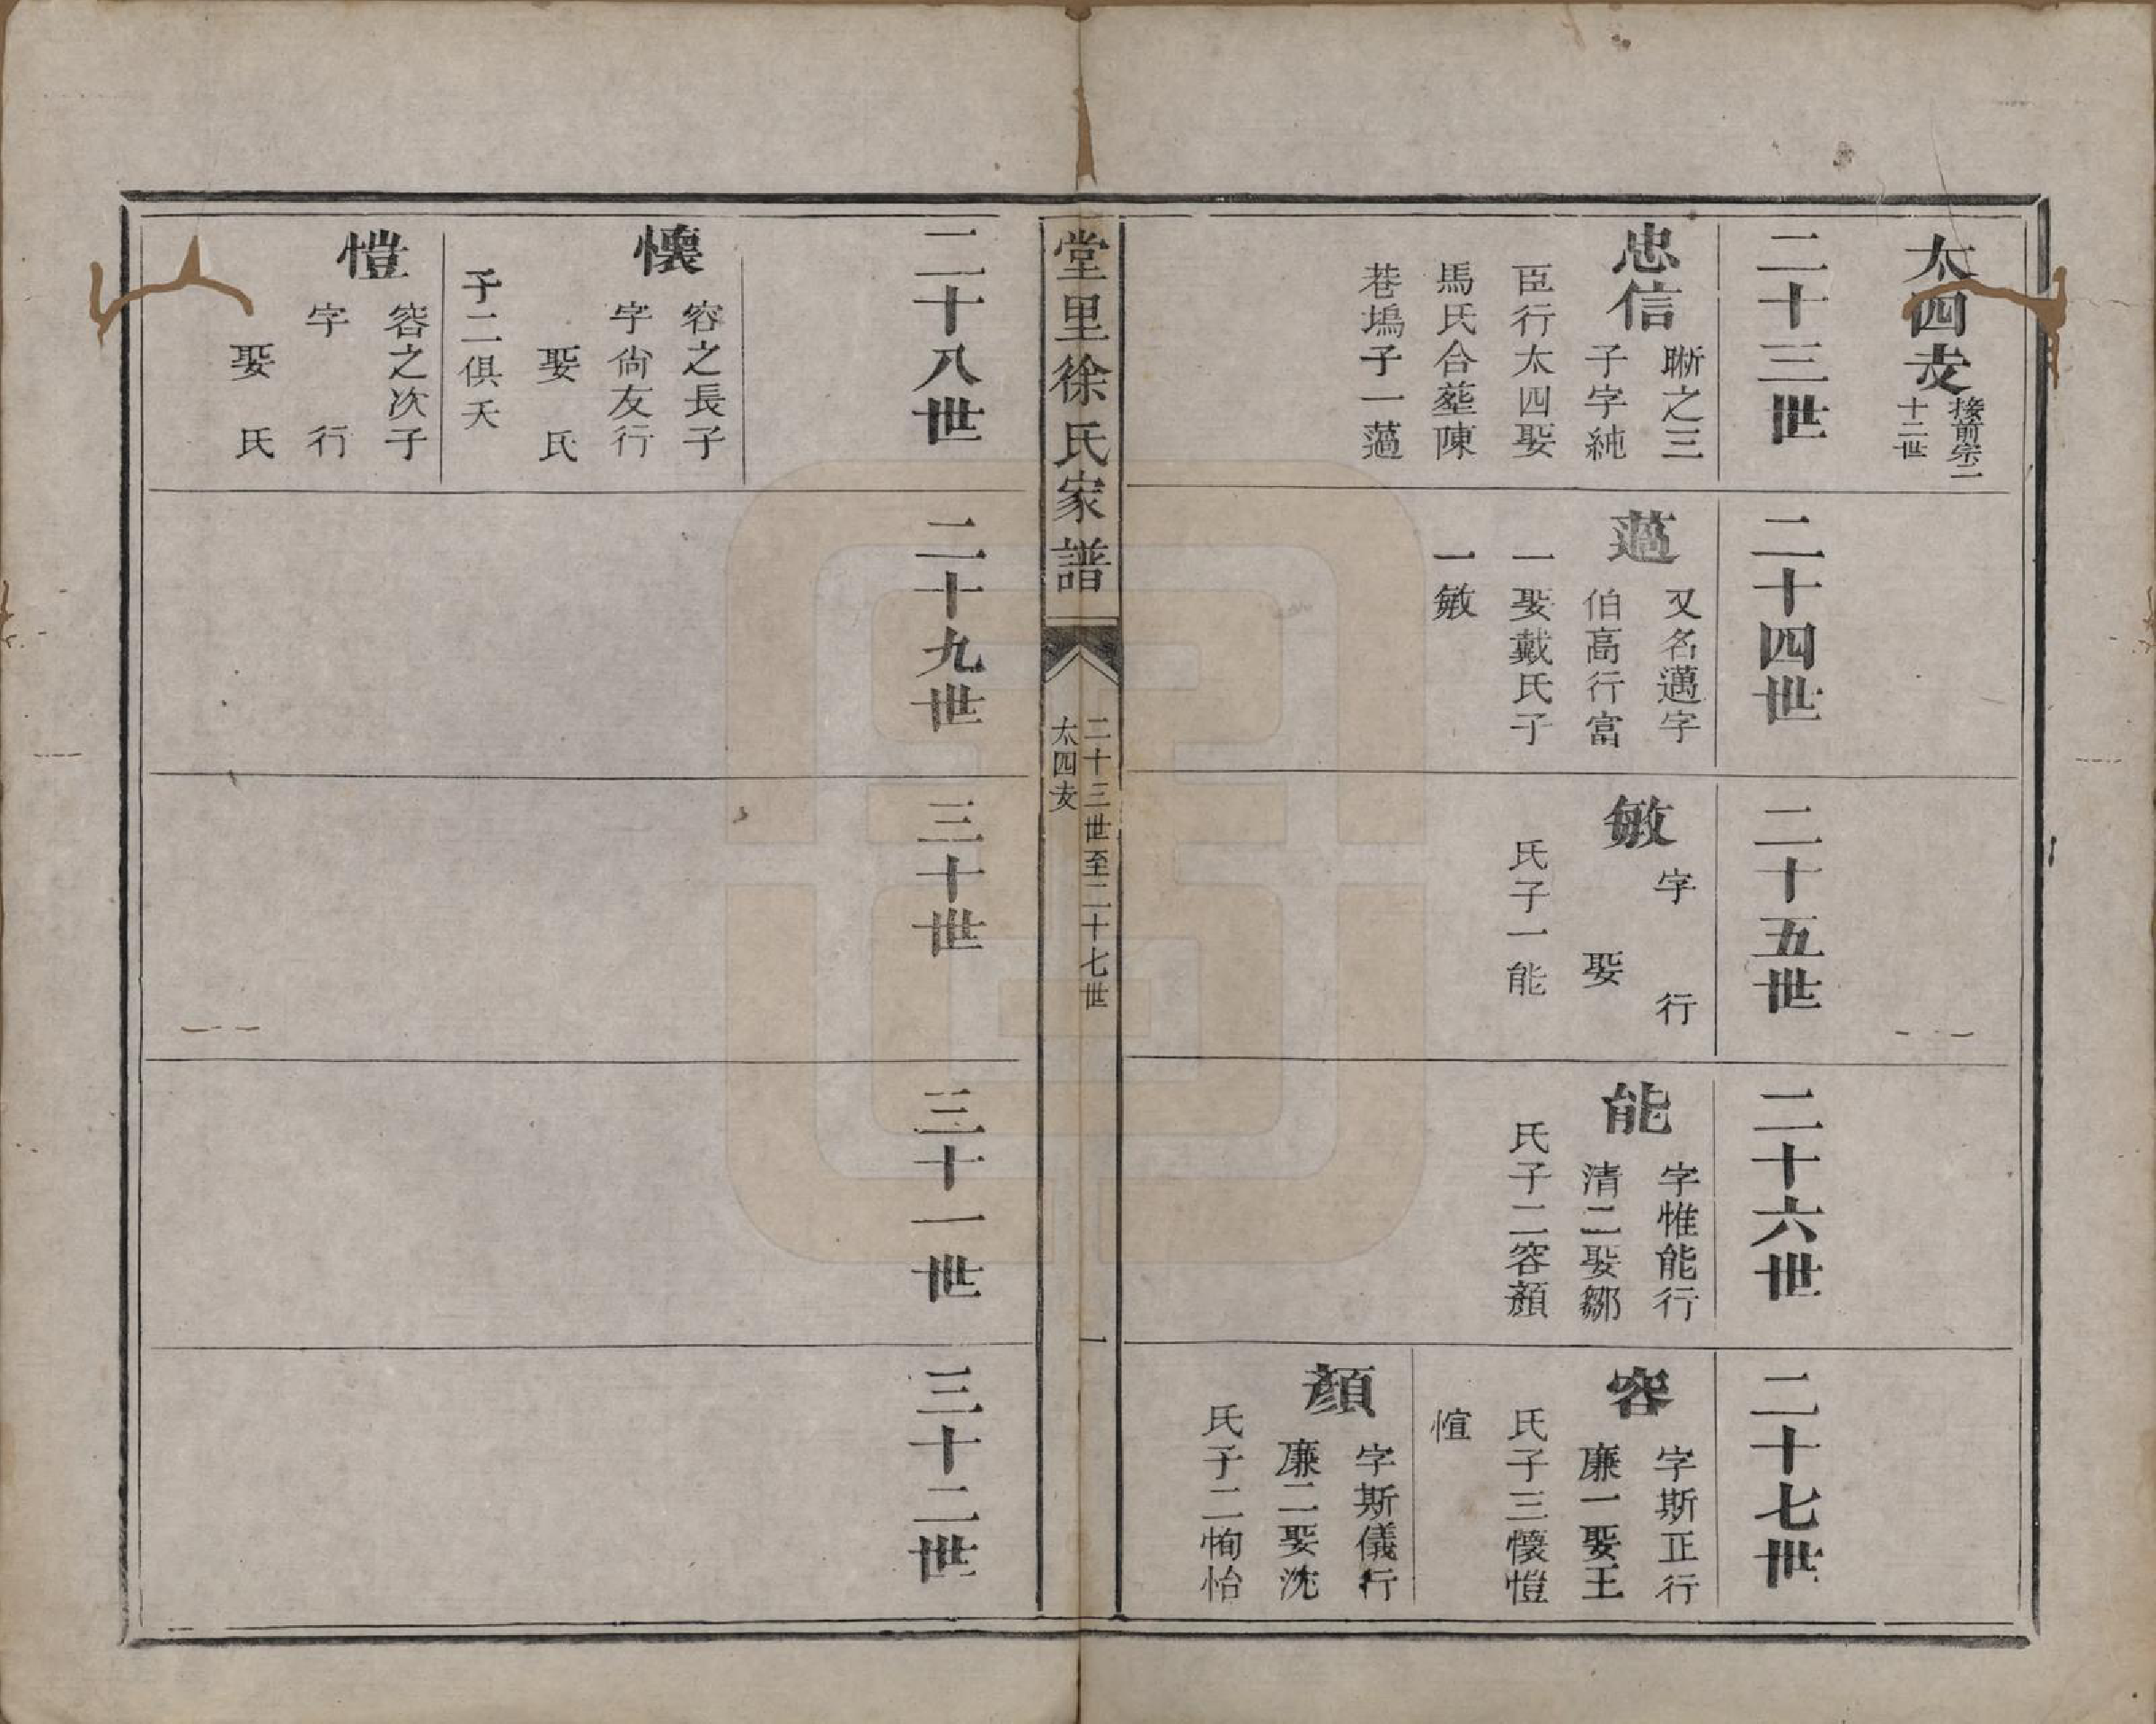 太四支
接前宗二
十二世
二十三世
忠信
聮之三
子字純
臣行太四娶
馬氏合塟陳
巷塢子一薖
二十四世
薖
又名邁字
伯高行富
一娶戴氏子
一敏
二十五世
敏
字　行
娶
氏子一能
二十六世
能
字惟能行
清二娶鄒
氏子二容顏
二十七世
容
字斯正行
廉一娶王
氏子三懷愷
愃
顏
字斯儀行
廉二娶沈
氏子二恂怡
堂里徐氏家譜
二十三世至二十七世
太四支
一
二十八世
懷
容之長子
字尙友行
娶　氏
子二俱夭
愷
容之次子
字　行
娶　氏
二十九世
三十世
三十一世
三十二世